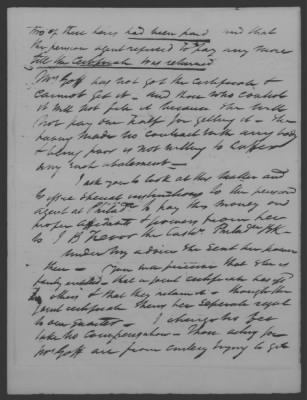 two of these heirs had been paid and that
the pension agent refused to pay any more
till the Certificate was returned
Mrs Goff has not got the Certificate &
cannot get it - and those who control
it will not give it because she will
not pay one half for getting it - She
having made no contract with any body
& being poor is not willing to suffer
any such abatement -
I ask you to look at this matter and
to give special instructions to the pension
agent at Philada to pay this money on
proper affidavits & powers from her
to J B Trevor the Cashr Philada Bk -
Under my advice she sent her power
then - Your
fairly entitled - that a joint certificate has
to others & that they retain it - though the
joint certificate shews her seperate right
to one quarter - I charge no fee
take no compensation - Those acting for
Mrs Goff are from trying to get